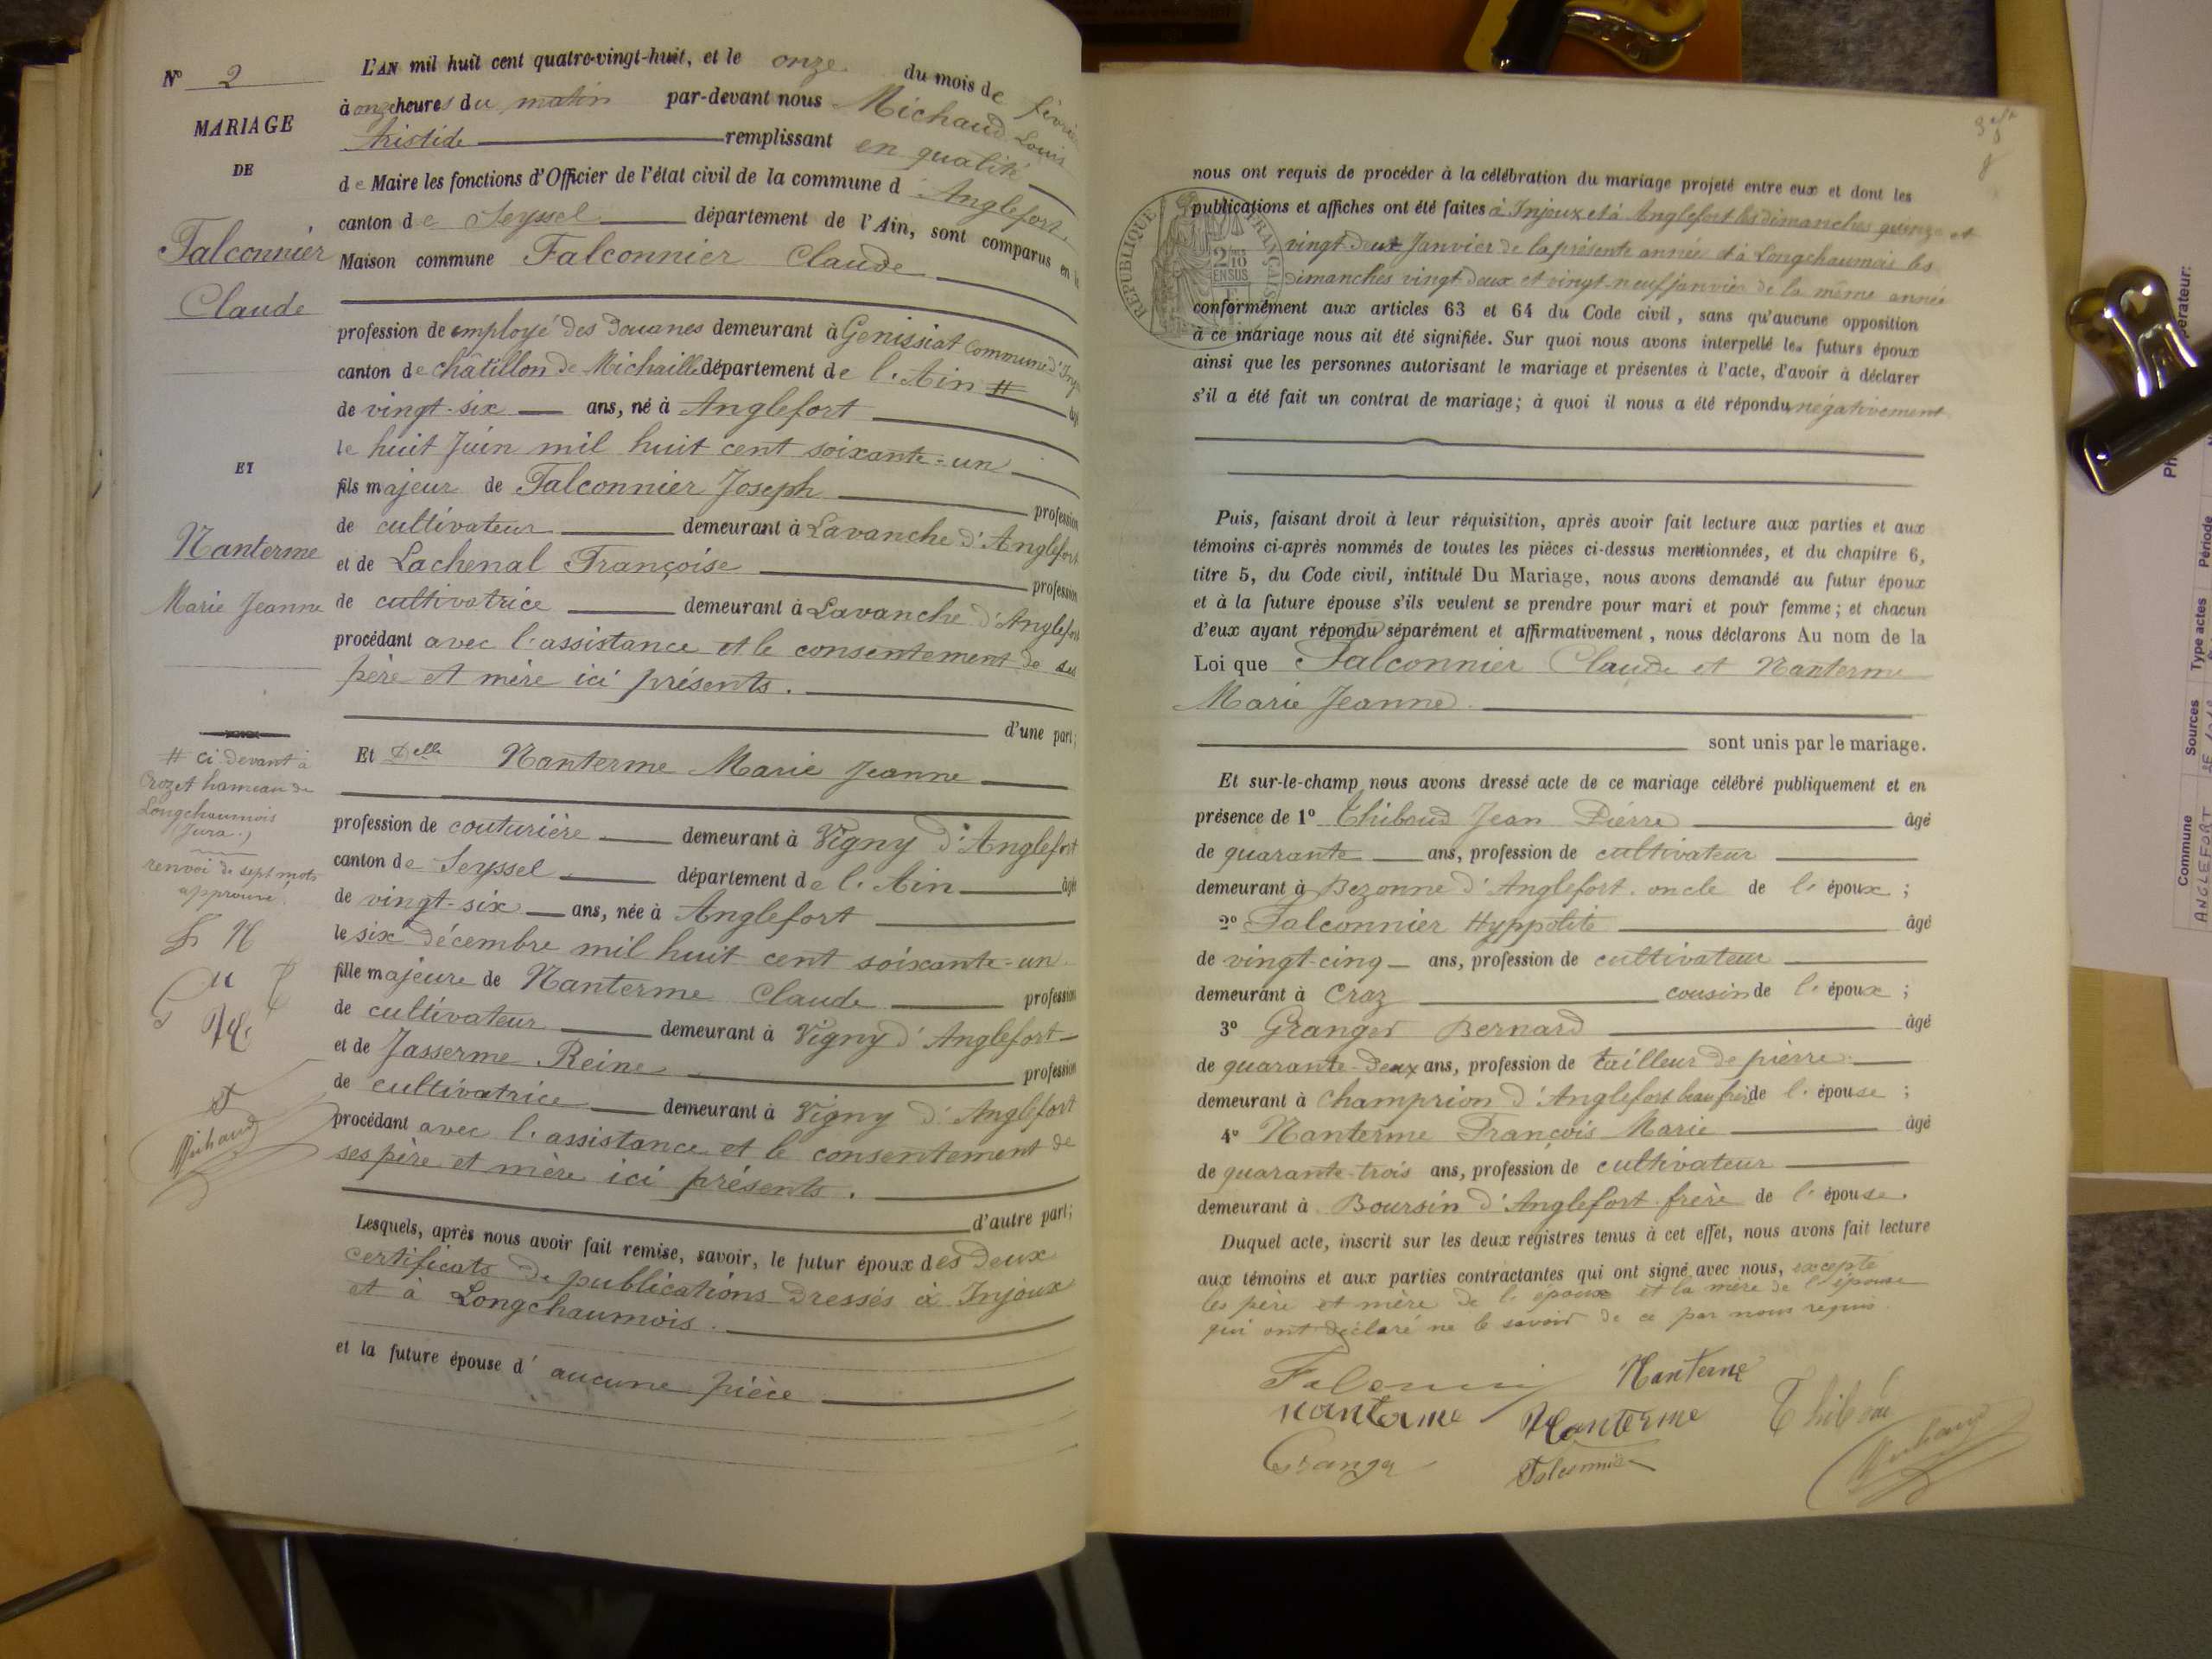 N° 2
MARIAGE
DE
Falconnier
Claude
ET
Nanterme
Marie Jeanne
# ci-devant à
Crozet hameau de
Longchaumois
(Jura.)
renvoi de sept mots
approuvé
Michaud
L'AN mil huit cent quatre-vingt-huit, et le onze du mois de février
à onze heures du matin par-devant nous Michaud Louis
Aristide remplissant en qualité
de Maire les fonctions d'Officier de l'état civil de la commune d'Anglefort,
canton de Seyssel département de l'Ain, sont comparus en la
Maison commune Falconnier Claude
profession de employé des Douanes demeurant à Genissiat commune d'Inj
canton de châtillon de Michaille département de l'Ain # âgé
de vingt-six ans, né à Anglefort
le huit Juin mil huit cent soixante-un
fils majeur de Falconnier Joseph profession
de cultivateur demeurant à Lavanche d'Anglefort
et de Lachenal Françoise profession
de cultivatrice demeurant à Lavanche d'Anglefort
procédant avec l'assistance et le consentement de ses
père et mère ici présents.
d'une part;
Et Delle Nanterme Marie Jeanne
profession de couturière demeurant à Vigny d'Anglefort
canton de Seyssel département de l'Ain âgée
de vingt-six ans, née à Anglefort
le six décembre mil huit cent soixante-un
fille majeure de Nanterme Claude profession
de cultivateur demeurant à Vigny d'Anglefort
et de Jasserme Reine profession
de cultivatrice demeurant à Vigny d'Anglefort
procédant avec l'assistance et le consentement de
ses père et mère ici présents.
d'autre part;
Lesquels, après nous avoir fait remise, savoir, le futur époux des deux
certificats de publications dressés à Injoux
et à Longchaumois.
et la future épouse d'aucune pièce
RÉPUBLIQUE FRANÇAISE
2/10 EN SUS
nous ont requis de procéder à la célébration du mariage projeté entre eux et dont les
publications et affiches ont été faites à Injoux et à Anglefort les dimanches quinze et
vingt-deux Janvier de la présente année et à Longchaumois les
dimanches vingt-deux et vingt-neuf janvier de la même année
conformément aux articles 63 et 64 du Code civil, sans qu'aucune opposition
à ce mariage nous ait été signifiée. Sur quoi nous avons interpellé les futurs époux
ainsi que les personnes autorisant le mariage et présentes à l'acte, d'avoir à déclarer
s'il a été fait un contrat de mariage; à quoi il nous a été répondu négativement
Puis, faisant droit à leur réquisition, après avoir fait lecture aux parties et aux
témoins ci-après nommés de toutes les pièces ci-dessus mentionnées, et du chapitre 6,
titre 5, du Code civil, intitulé Du Mariage, nous avons demandé au futur époux
et à la future épouse s'ils veulent se prendre pour mari et pour femme; et chacun
d'eux ayant répondu séparément et affirmativement, nous déclarons Au nom de la
Loi que Falconnier Claude et Nanterme
Marie Jeanne
sont unis par le mariage.
Et sur-le-champ nous avons dressé acte de ce mariage célébré publiquement et en
présence de 1° Thiboud Jean Pierre âgé
de quarante ans, profession de cultivateur
demeurant à Bezonne d'Anglefort oncle de l'époux;
2° Falconnier Hyppolite âgé
de vingt-cinq ans, profession de cultivateur
demeurant à Craz cousin de l'époux;
3° Granger Bernard âgé
de quarante-deux ans, profession de tailleur de pierre
demeurant à Champrion d'Anglefort beau frère de l'épouse;
4° Nanterme François Marie âgé
de quarante-trois ans, profession de cultivateur
demeurant à Boursin d'Anglefort frère de l'épouse.
Duquel acte, inscrit sur les deux registres tenus à cet effet, nous avons fait lecture
aux témoins et aux parties contractantes qui ont signé avec nous, excepté
les père et mère de l'époux et la mère de l'épouse
qui ont déclaré ne le savoir de ce par nous requis.
Nanterme
nanterme Nanterme
Granger Falconnier
Michaud
Commune
Sources
Type actes
Période
ANGLEFORT